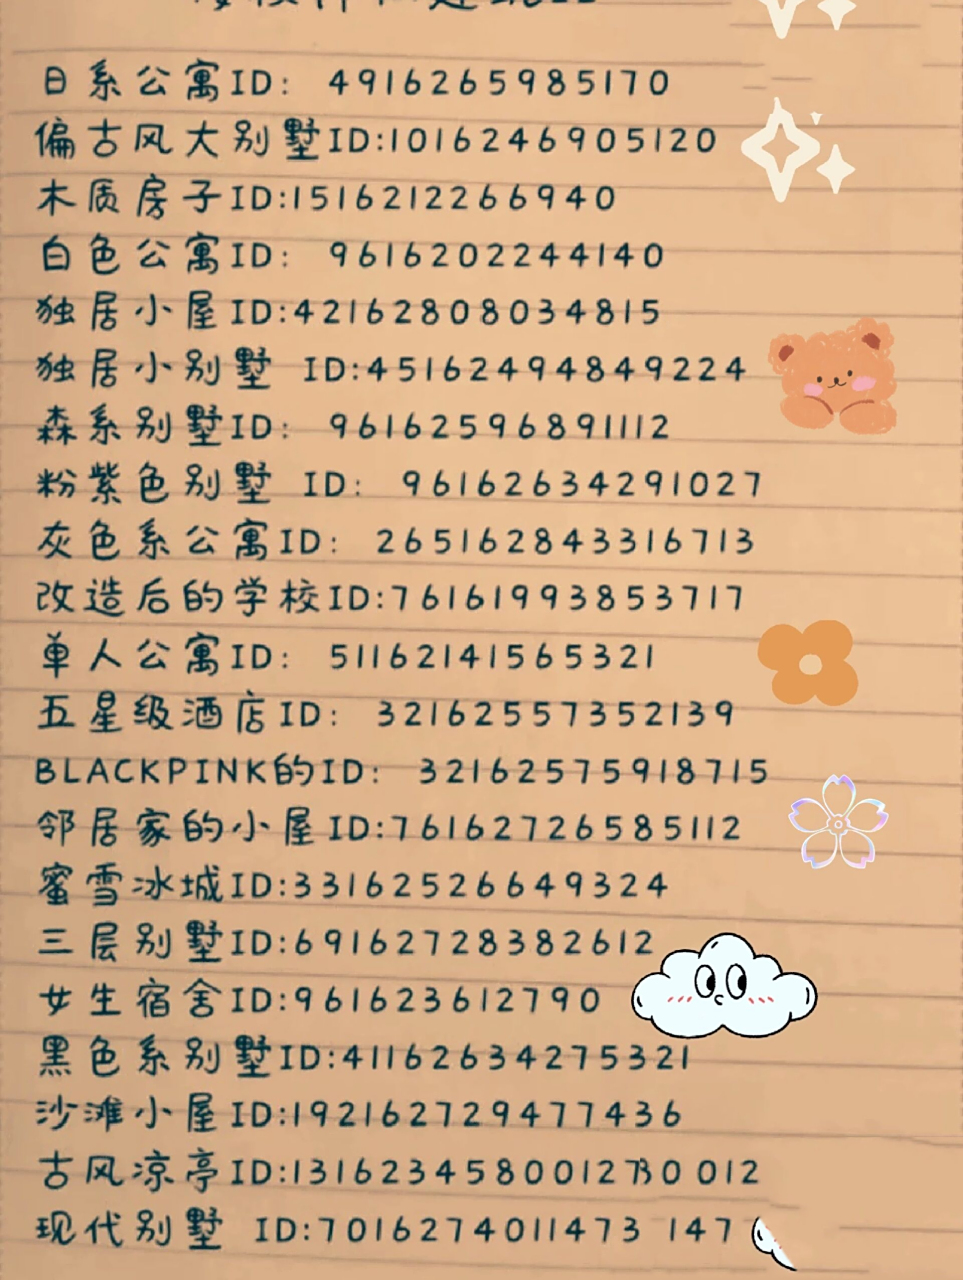 日系公寓ID: 4916265985170
偏古风大别墅ID:1016246905120
木质房子ID:1516212266940
白色公寓ID: 9616202244140
独居小屋ID:42162808034815
独居小别墅 ID:45162494849224
森系别墅ID: 96162596891112
粉紫色别墅 ID: 96162634291027
灰色系公寓ID: 265162843316713
改造后的学校ID:76161993853717
单人公寓ID: 51162141565321
五星级酒店ID: 32162557352139
BLACKPINK的ID: 32162575918715
邻居家的小屋ID:76162726585112
蜜雪冰城ID:33162526649324
三层别墅ID:69162728382612
女生宿舍ID:961623612790
黑色系别墅ID:41162634275321
沙滩小屋ID:192162729477436
古风凉亭ID:1316234580012 012
现代别墅 ID:7016274011473 147